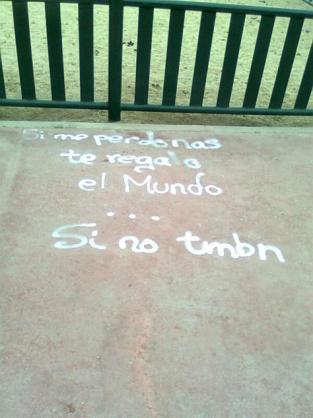 Si me perdonas
te regalo
el Mundo
...
Si no tmbn